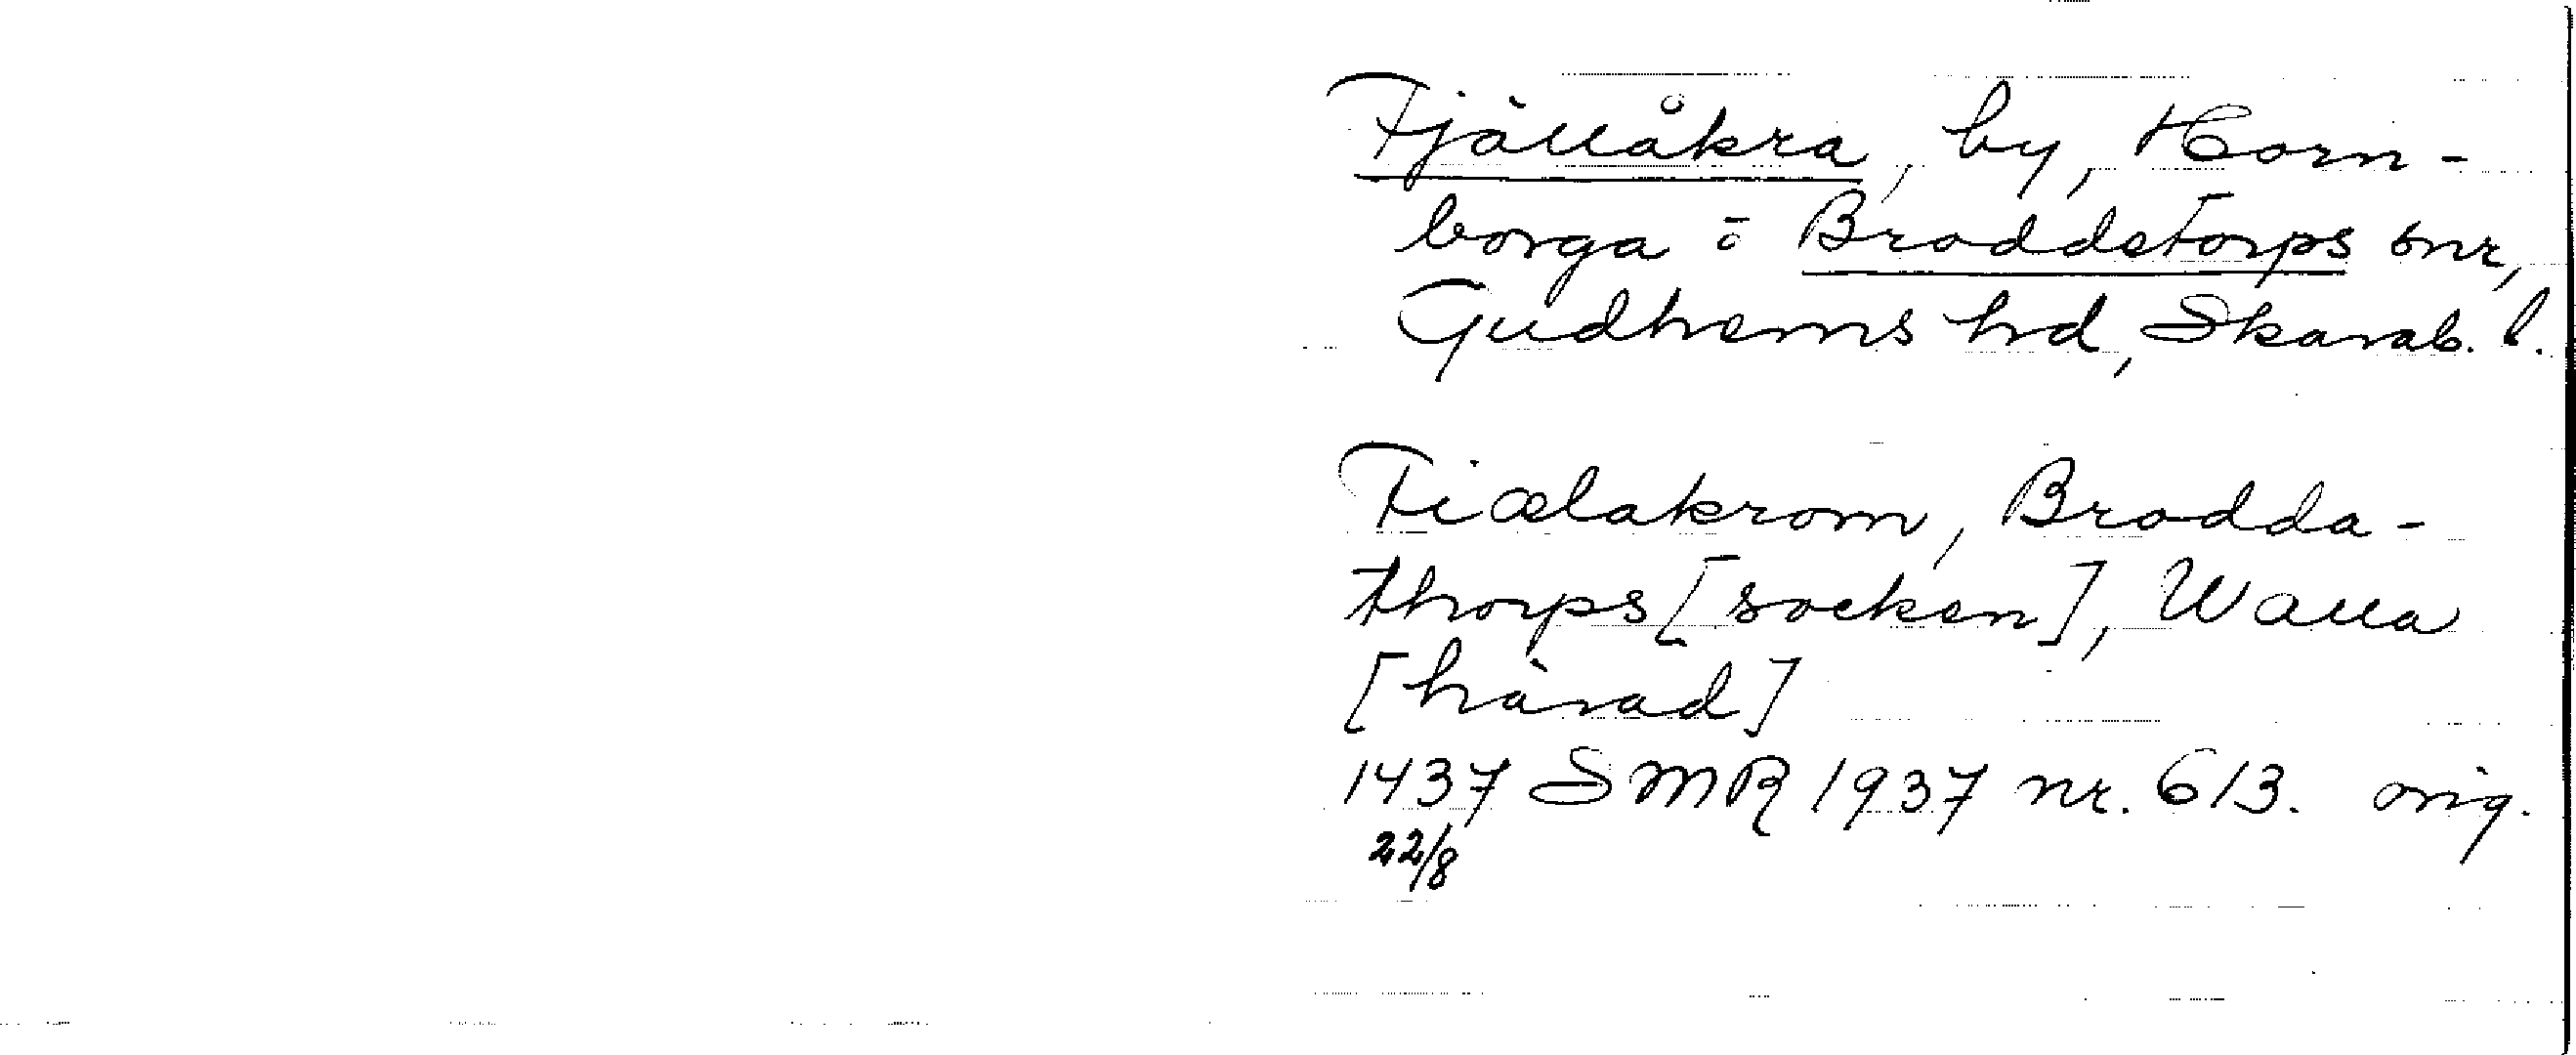 Fjällåkra, by, Horn-
borga o Broddetorps snr,
Gudhems hd, Skarab. l.
Fiælakrom, Brodda-
thorps [socken], Walla
[härad]
1437 SMR 1937 nr. 613. orig.
22/8